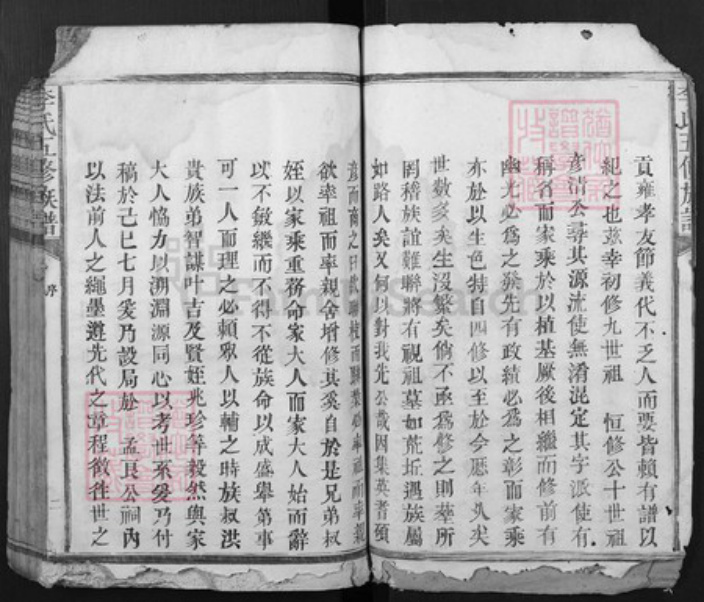 貢雍孝友節義代不乏人而要皆賴有譜以
紀之也茲幸初修九世祖 恒修公十世祖
彥清公尋其源流使無淆混定其字派使有
稱名而家乘於以植基厥後相繼而修前有
幽光必為之發先有政績必為之彰而家乘
亦於以生色特自四修以至於今歷年久矣
世數多矣生沒繁矣倘不亟為修之則塋所
罔稽族誼難聯將有視祖墓如荒坵遇族屬
如路人矣又何以對我先公哉因集英耆碩
彥而商之曰欲聯枝而歸本必率祖而率親
欲率祖而率親舍增修其奚自於是兄弟叔
姪以家乘重務命家大人而家大人始而辭
以不敏繼而不得不從族命以成盛舉第事
可一人而理之必賴眾人以輔之時族叔洪
貴族弟智謀叶吉及賢姪兆珍等毅然與家
大人恊力以溯淵源同心以考世系爰乃付
稿於己巳七月爰乃設局於 孟良公祠內
以法前人之繩墨遵先代之章程徵往世之
李氏五修族譜
序